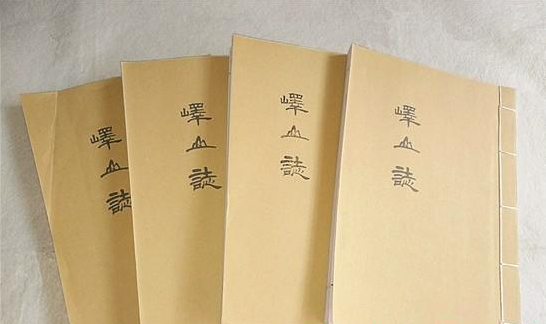 嶧山誌
嶧山誌
嶧山誌
嶧山誌